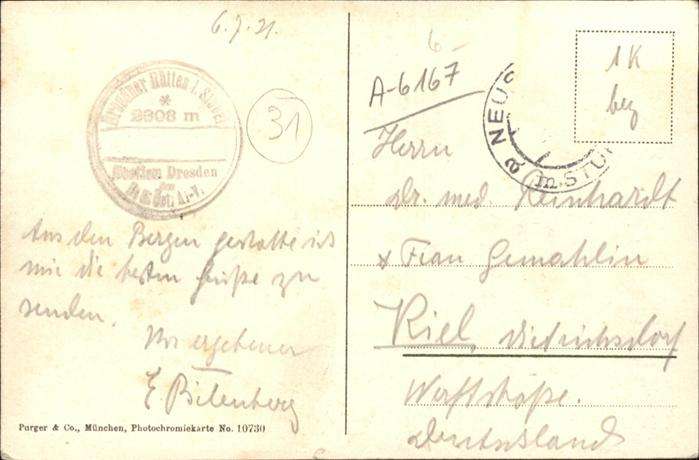 6.7.21.
Dresdner Hütte i. Stubai
2308 m
Section Dresden
des
D. u. Oe. A.-V.
31
Aus den Bergen gestatte ich
mir die besten Grüße zu
senden.
Ihr ergebener
E
Purger & Co., München, Photochromiekarte No. 10730
6-
A-6167
NEUS
a
m. STUB
1K
bez
Herrn
Dr. med. Reinhardt
& Frau Gemahlin
Kiel, Diedrichsdorf
Werftstraße.
Deutschland